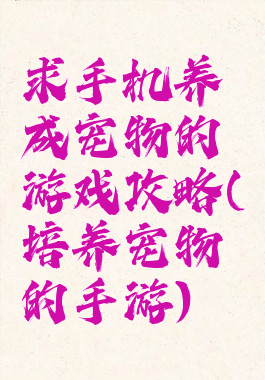 求手机养
成宠物的
游戏攻略(
培养宠物
的手游)